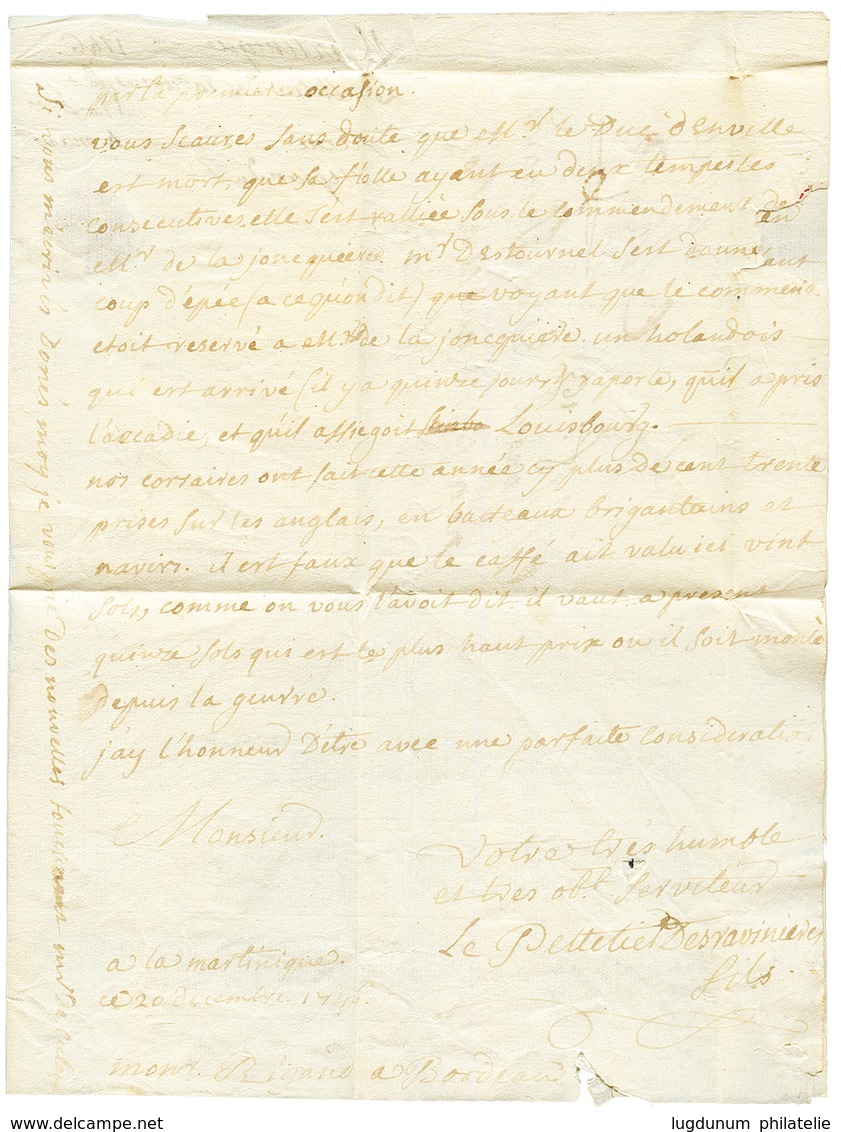 par la premiere occasion.
vous scaures sans doute que Mr. le Duc d'Enville
est mort, que sa flotte ayant eu deux tempestes
consecutives elle s'est ralliée sous le commendement de
Mr de la jonequiere. mr DEstournel s'est donné un
coup d'épée (a cequondit) que voyant que le commend
etoit reservé a Mr. de la jonequiere. un holandois
qui est arrivé (il y a quinze jours) raporte, qu'il a pris
l'accadie, et qu'il assiegoit Louisbourg.
nos corsaires ont fait cette année cy plus de cent trente
prises sur les anglais, en batteaux brigantains et
navirs. il est faux que le caffé ait valu ici vint
sols, comme on vous l'avoit dit. il vaut a present
quinze sols qui est le plus haut prix ou il soit monté
depuis la geurre.
j'ay l'honneur D'être avec une parfaite consideration
Monsieur.
Votre trés humble
et tres obt. serviteur
Le Pelletier Desravinieres
fils.
a la martinique.
ce 20 décembre 1746.
monsr. Rigaud a Bordeau
Si vous m'ecrivés donés moy je vous prie Des nouvelles touchant mr De
www.delcampe.net
lugdunum philatelie